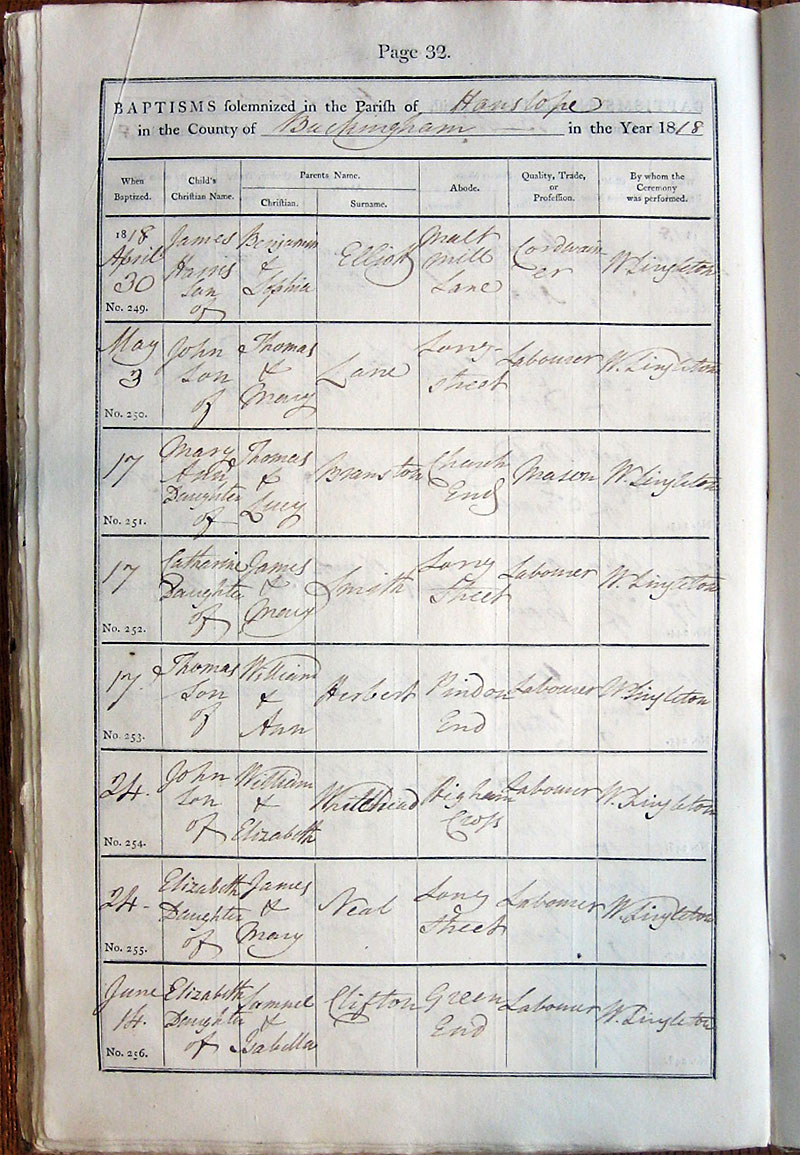 Page 32.
BAPTISMS solemnized in the Parish of Hanslope
in the County of Buckingham in the Year 1818
When Baptized.
Child's Christian Name.
Parents Name.
Christian.
Surname.
Abode.
Quality, Trade, or Profession.
By whom the Ceremony was performed.
1818 April 30 No. 249.
James Harris Son of
Benjamin & Sophia
Elliott
Malt Mill Lane
Cordwainer
W. Singleton
May 3 No. 250.
John Son of
Thomas & Mary
Lane
Long street
Labourer
W. Singleton
17 No. 251.
Mary Ann Daughter of
Thomas & Lucy
Branston
Church End
Mason
W. Singleton
17 No. 252.
Catherine Daughter of
James & Mary
Smith
Long Street
Labourer
W. Singleton
17. No. 253.
Thomas Son of
William & Ann
Herbert
Pindon End
Labourer
W. Singleton
24. No. 254.
John Son of
William & Elizabeth
Whitehead
Higham Cross
Labourer
W. Singleton
24 No. 255.
Elizabeth Daughter of
James & Mary
Neal
Long Street
Labourer
W. Singleton
June 14. No. 256.
Elizabeth Daughter of
Samuel & Isabella
Clifton
Green End
Labourer
W. Singleton